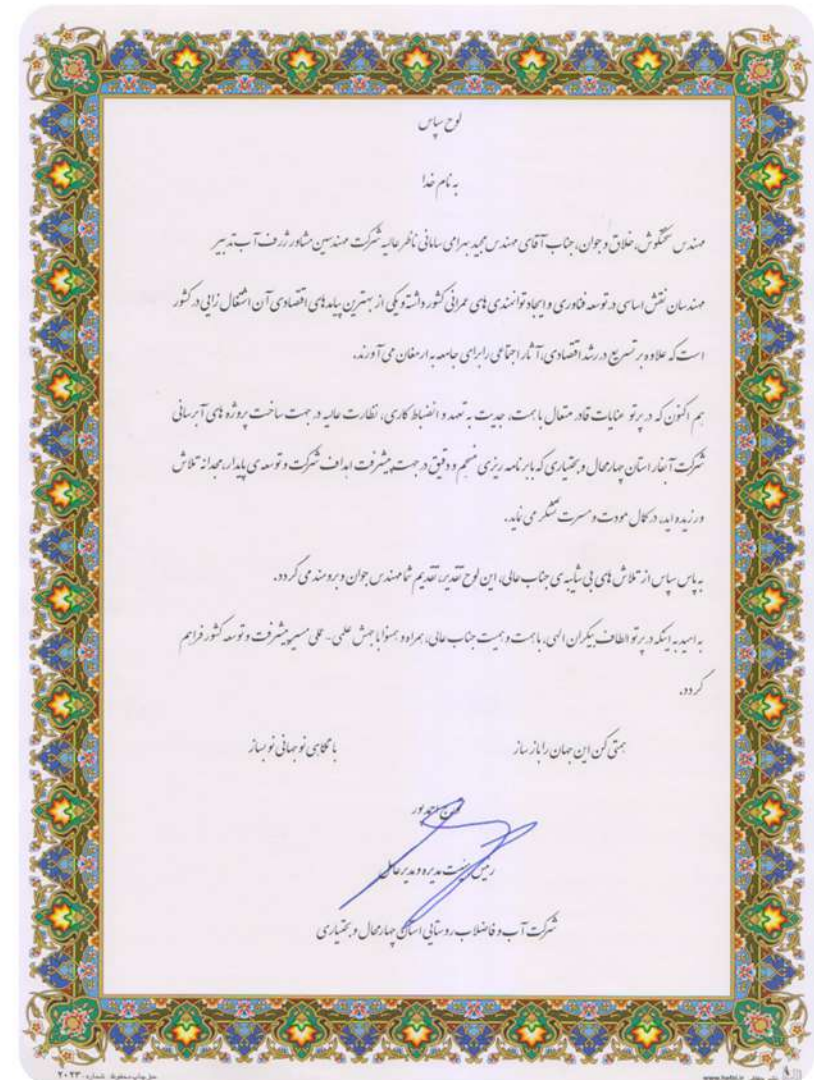 لوح سپاس
به نام خدا
مهندس سختکوش، خلاق و جوان، جناب آقای مهندس مجید بهرامی سامانی ناظر عالیه شرکت مهندسین مشاور ژرف آب تدبیر
مهندسان نقش اساسی در توسعه فناوری و ایجاد توانمندی های عمرانی کشور داشته و یکی از بهترین پیامدهای اقتصادی آن اشتغال زایی در کشور
است که علاوه بر تسریع در رشد اقتصادی، آثار اجتماعی را برای جامعه به ارمغان می آورند.
هم اکنون که در پرتو عنایات قادر متعال با همت، جدیت به تعهد و انضباط کاری، نظارت عالیه در جهت ساخت پروژه های آبرسانی
شرکت آبفار استان چهارمحال و بختیاری که با برنامه ریزی منسجم و دقیق در جهت پیشرفت اهداف شرکت و توسعه ی پایدار، مجدانه تلاش
ورزیده اید، در کمال مودت و مسرت تشکر می نماید.
به پاس سپاس از تلاش های بی شائبه ی جناب عالی، این لوح تقدیر، تقدیم شما مهندس جوان و برومند می گردد.
به امید به اینکه در پرتو الطاف بیکران الهی، با همت و حمیت جناب عالی، همراه و همنوا با جهش علمی - عملی مسیر پیشرفت و توسعه کشور فراهم
گردد.
همتی کن این جهان را باز ساز
با نگاهی نو جهانی نو بساز
رئیس هیئت مدیره و مدیرعامل
شرکت آب و فاضلاب روستایی استان چهارمحال و بختیاری
حق چاپ محفوظ شماره ۲۰۲۳